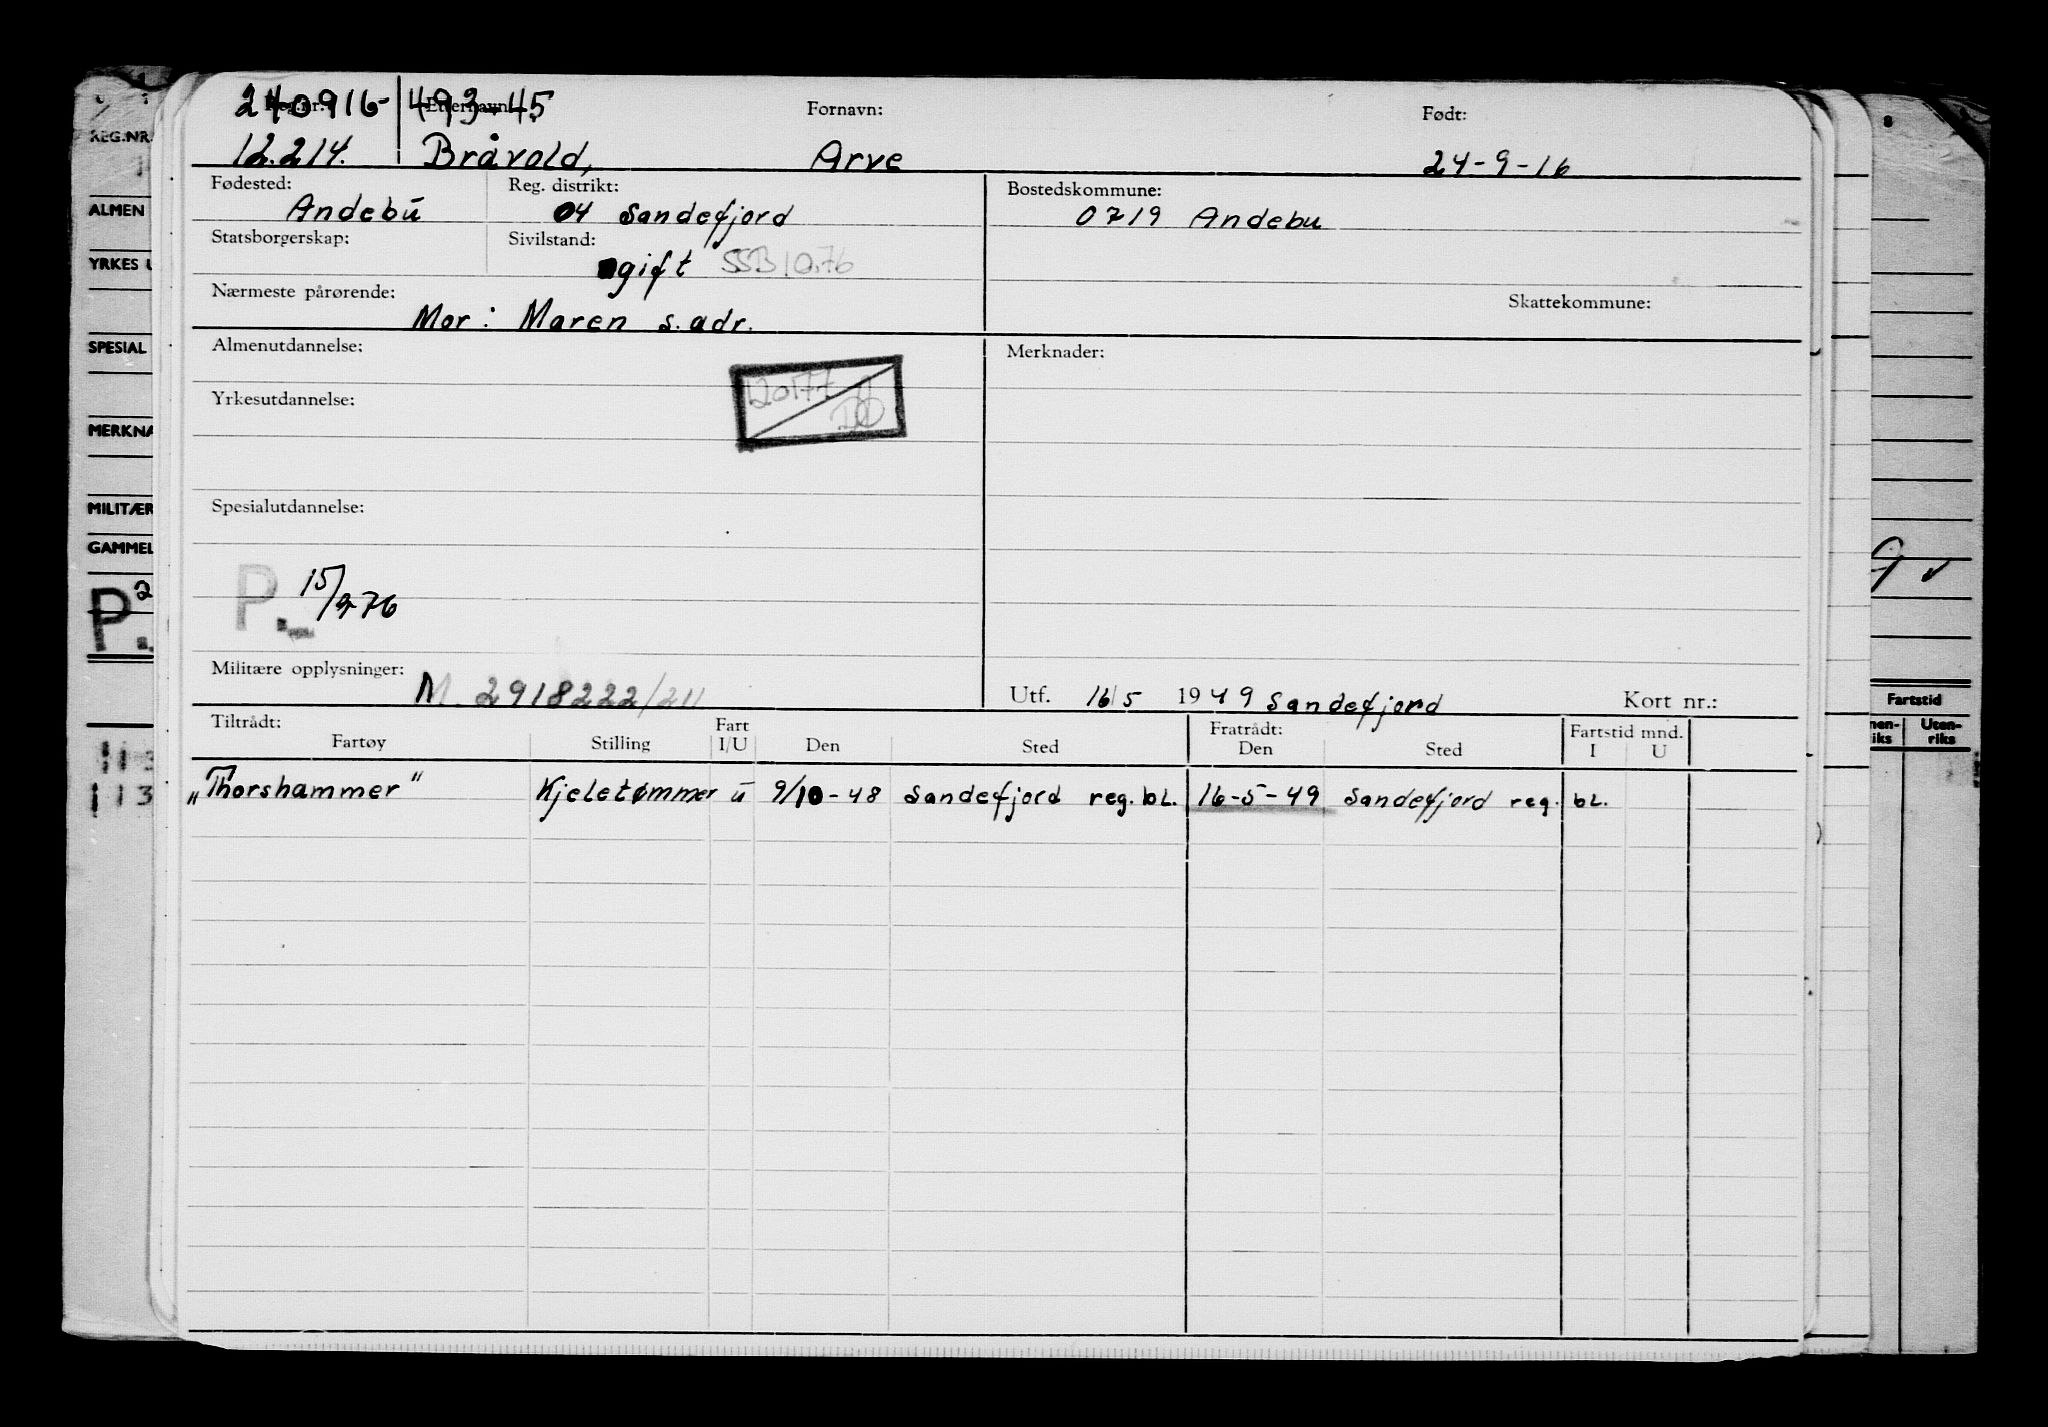 240916- 493-45
Reg.nr.: Etternavn: Fornavn: Født:
12.214. Bråvold, Arve 24-9-16
Fødested: Reg. distrikt: Bostedskommune:
Andebu 04 Sandefjord 0719 Andebu
Statsborgerskap: Sivilstand:
gift SSB 10.76
Nærmeste pårørende: Skattekommune:
Mor: Maren s. adr.
Almenutdannelse: Merknader:
120177
Yrkesutdannelse:
Spesialutdannelse:
P. 15/276
Militære opplysninger:
M. 2918222/211
Utf. 16/5 1949 Sandefjord Kort nr.:
Tiltrådt: Fart Fratrådt: Fartstid mnd.
Fartøy Stilling I/U Den Sted Den Sted I U
"Thorshammer" Kjeletømmer u 9/10-48 Sandefjord reg. bl. 16-5-49 Sandefjord reg. bl.
REG.NR.
ALMEN
YRKES U
SPESIAL
MERKNA
MILITÆR
GAMMEL
P. 2
8
Fartstid
nen-riks Uten-riks